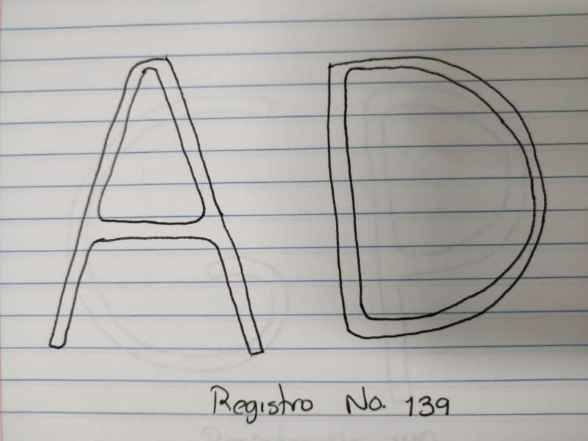 AD
Registro No. 139